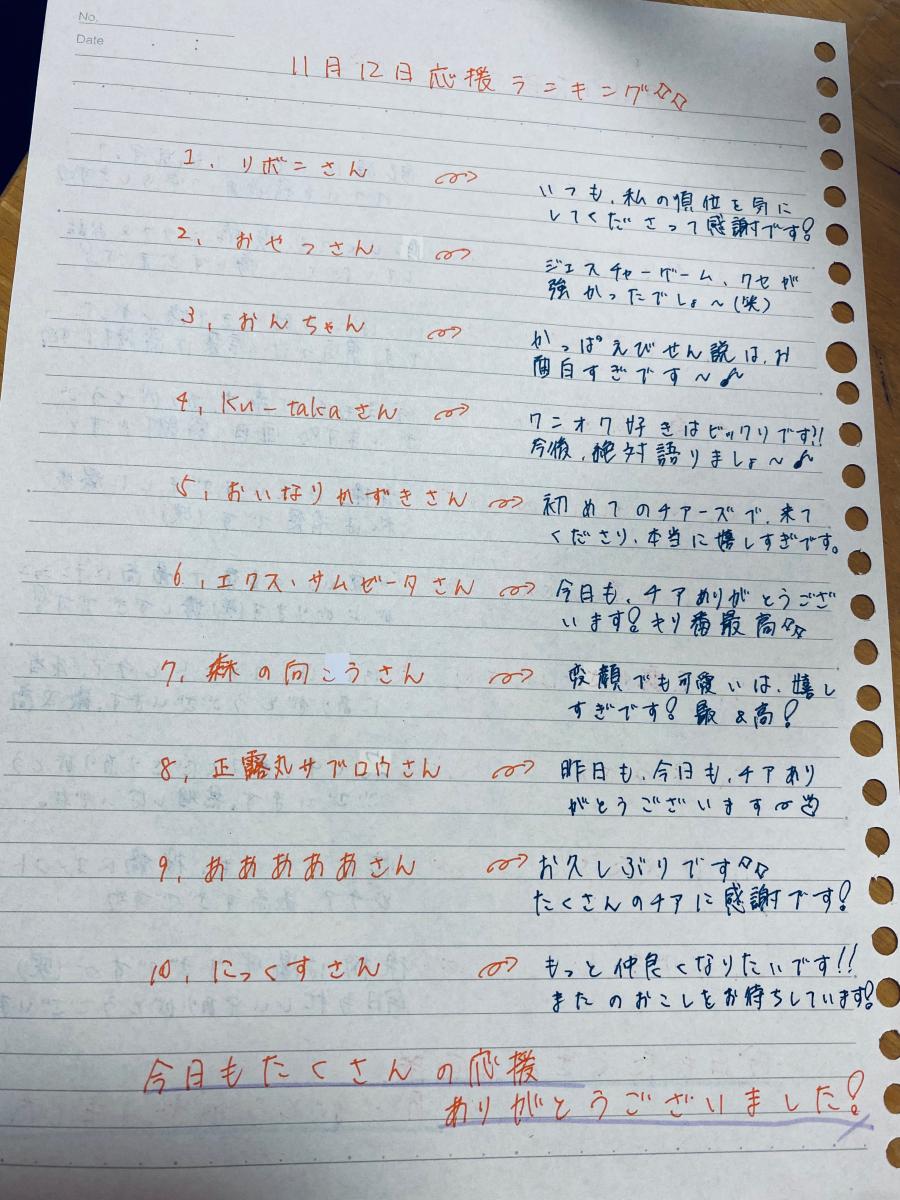 No.
Date
11月12日応援ランキング☆☆
1, リボンさん
いつも、私の順位を気に
してくださって感謝です!
2, おやっさん
ジェスチャーゲーム、クセが
強かったでしょ〜(笑)
3, おんちゃん
かっぱえびせん説は、お
面白すぎです〜♪
4, Ku-takaさん
ワニオワ好きはビックリです!!
今後、絶対語りましょ〜♪
5, おいなりかずきさん
初めてのチアーズで、来て
くださり、本当に嬉しすぎです。
6, エクス・サムゼータさん
今日も、チアありがとうござ
います!キリ番最高☆☆
7, 森の向こうさん
変顔でも可愛いは、嬉し
すぎです!最&高!
8, 正露丸サブロウさん
昨日も、今日も、チアあり
がとうございます〜
9, ああああああさん
お久しぶりです☆☆
たくさんのチアに感謝です!
10, にっくすさん
もっと仲良くなりたいです!!
またのおこしをお待ちしています!
今日もたくさんの応援
ありがとうございました!